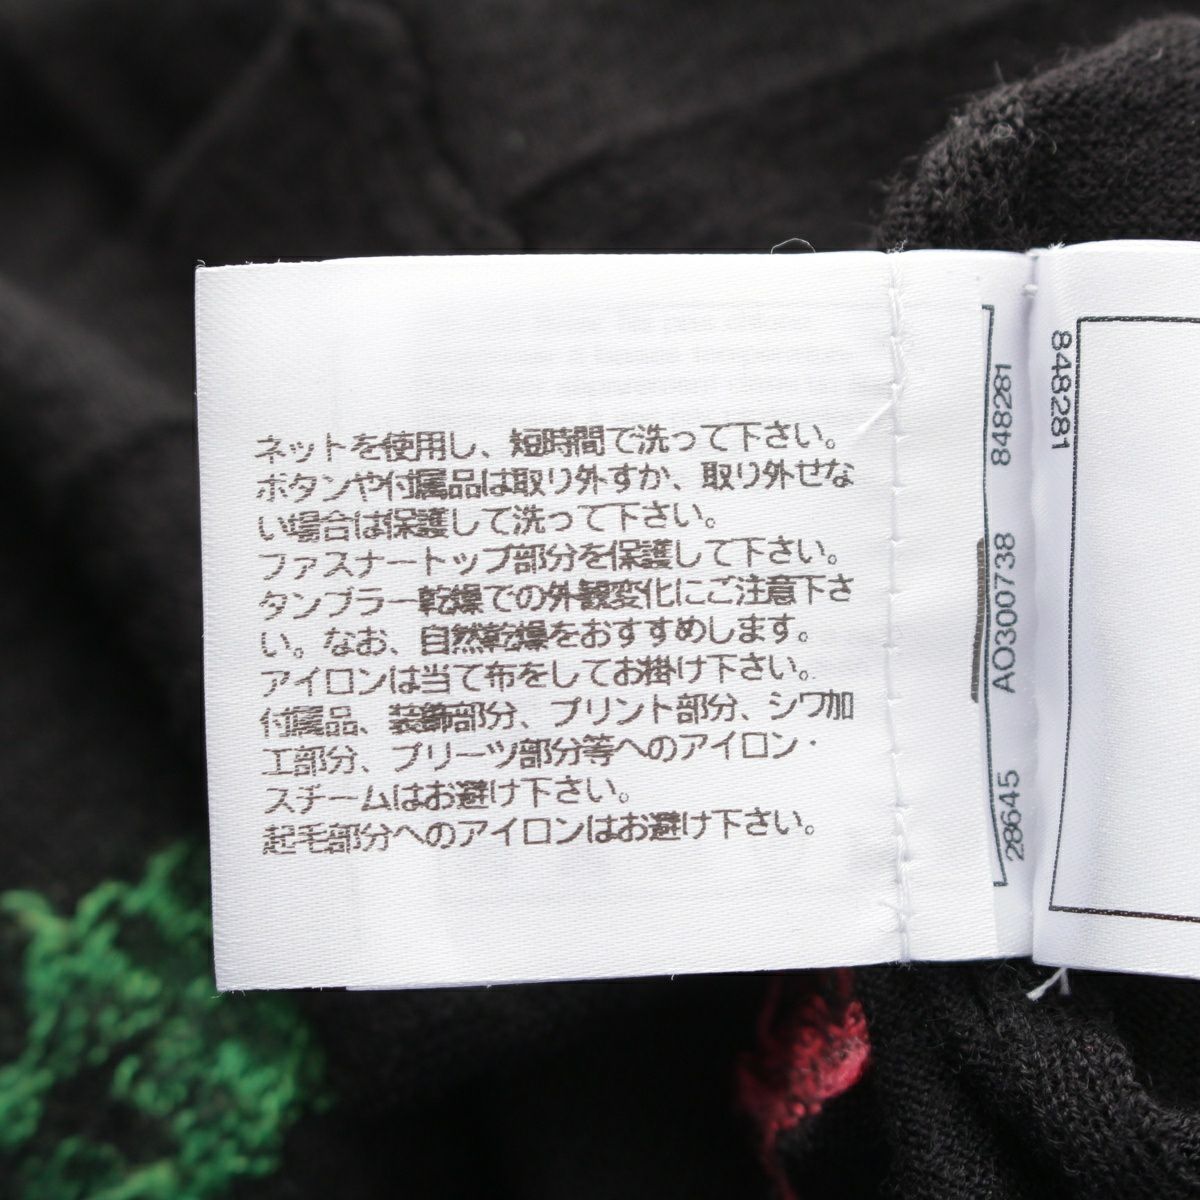 ネットを使用し、短時間で洗って下さい。
ボタンや付属品は取り外すか、取り外せな
い場合は保護して洗って下さい。
ファスナートップ部分を保護して下さい。
タンブラー乾燥での外観変化にご注意下さ
い。なお、自然乾燥をおすすめします。
アイロンは当て布をしてお掛け下さい。
付属品、装飾部分、プリント部分、シワ加
工部分、プリーツ部分等へのアイロン・
スチームはお避け下さい。
起毛部分へのアイロンはお避け下さい。
28645 AO300738 848281
848281